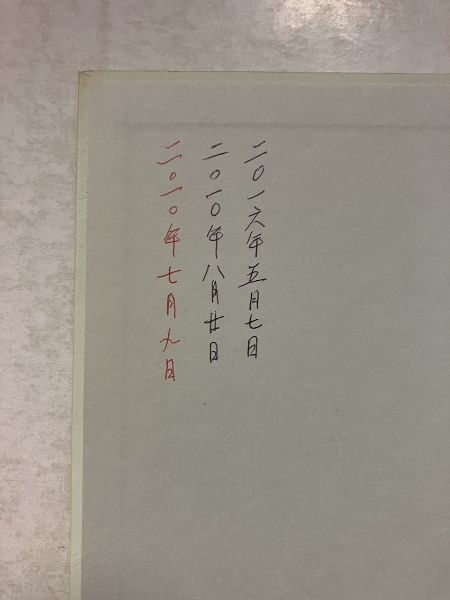 二〇一六年五月七日
二〇一〇年八月廿日
二〇一〇年七月九日